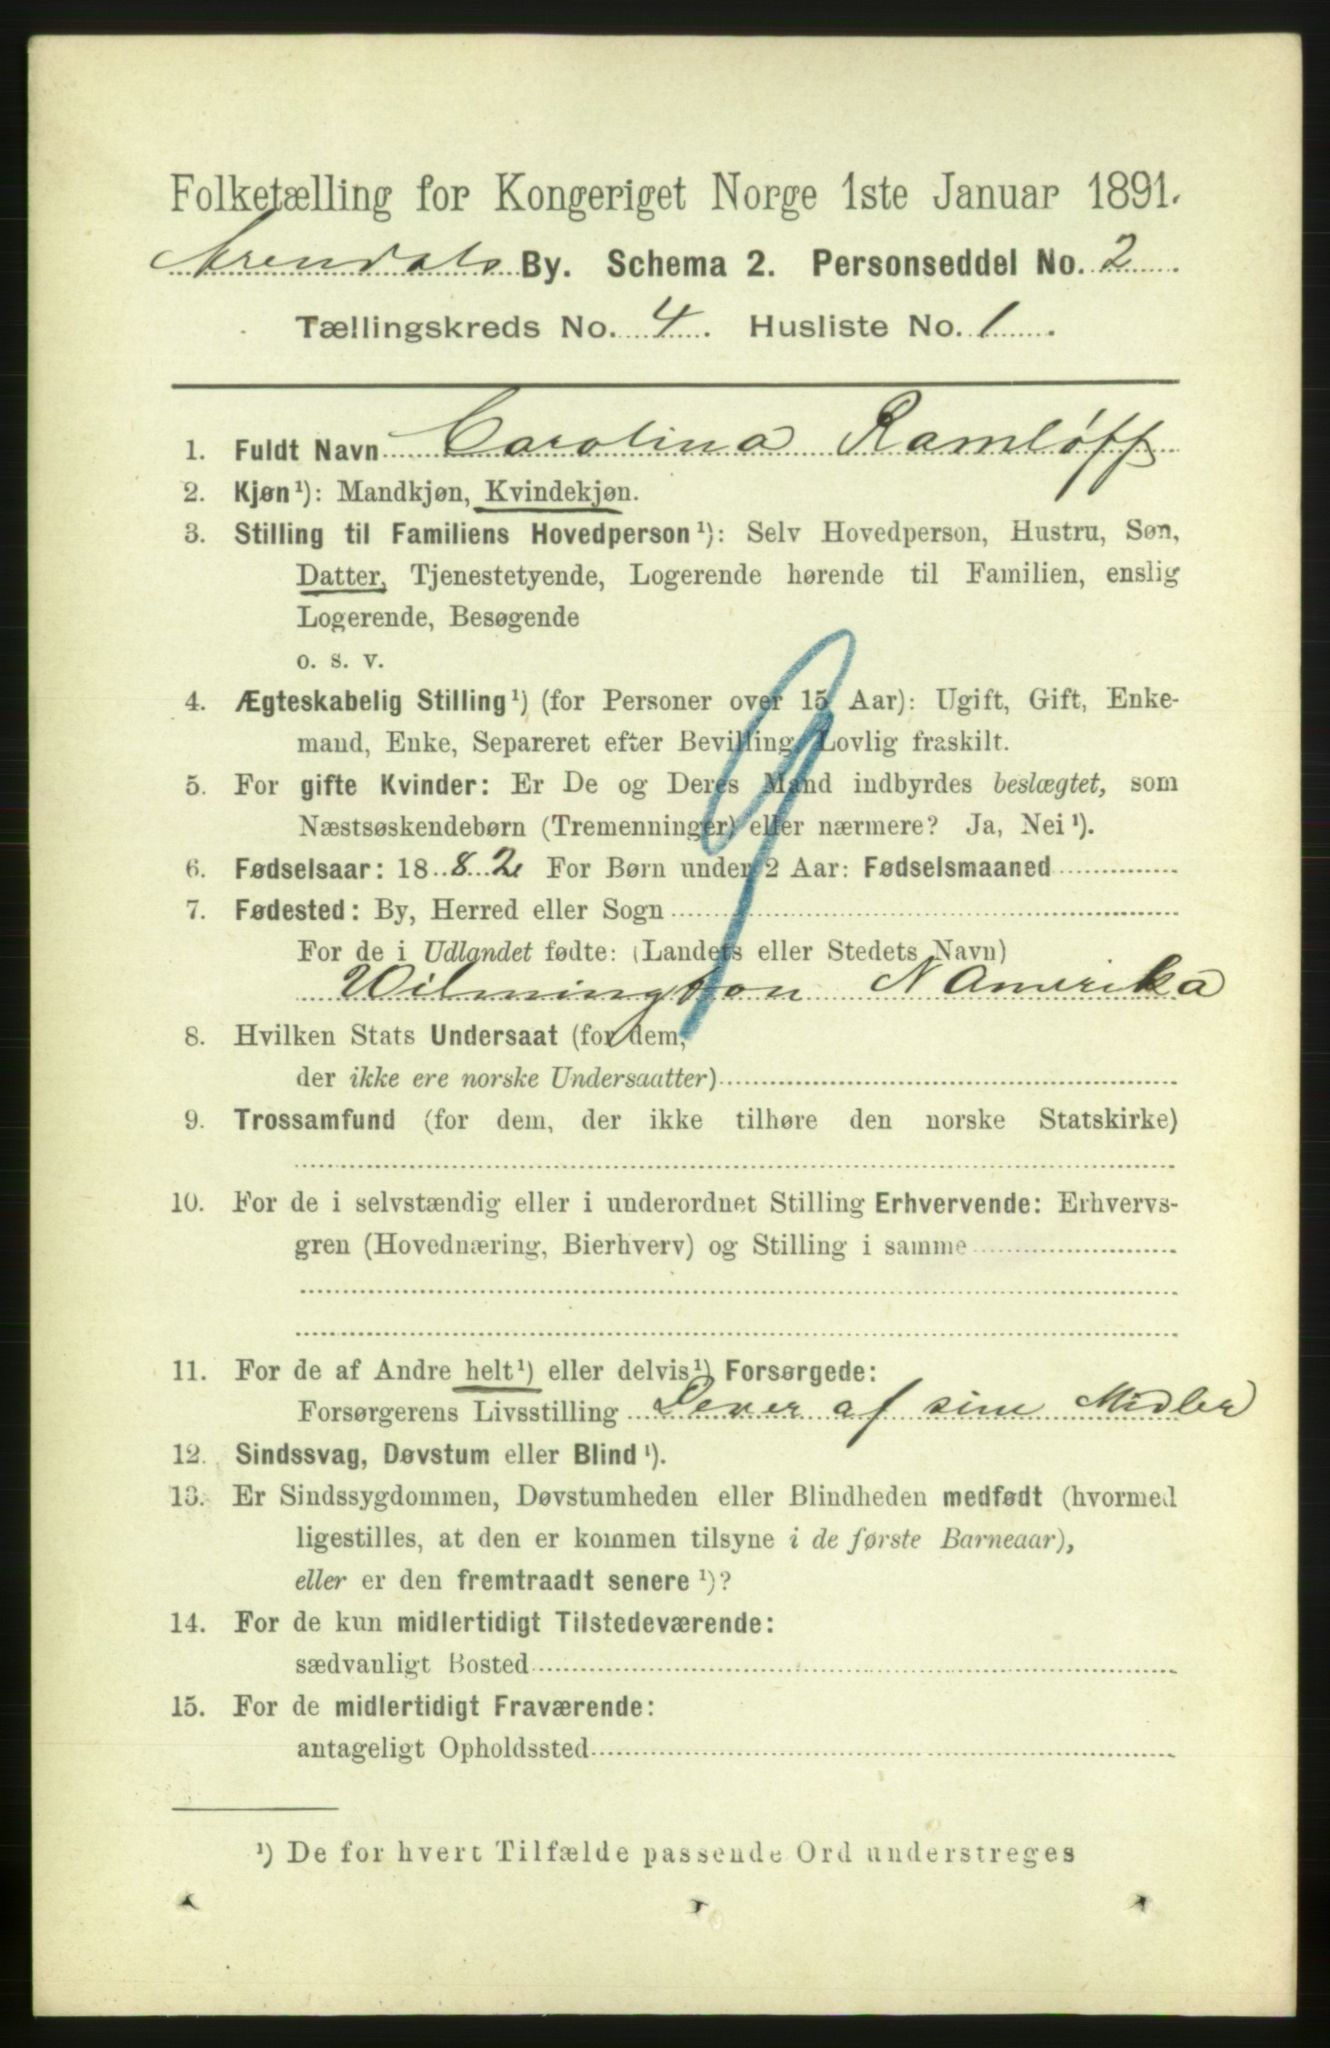 Folketælling for Kongeriget Norge 1ste Januar 1891.
Arendals By. Schema 2. Personseddel No. 2
Tællingskreds No. 4. Husliste No. 1.
1. Fuldt Navn Carolina Ramløff
2. Kjøn¹): Mandkjøn, Kvindekjøn.
3. Stilling til Familiens Hovedperson¹): Selv Hovedperson, Hustru, Søn,
Datter, Tjenestetyende, Logerende hørende til Familien, enslig
Logerende, Besøgende
o. s. v.
4. Ægteskabelig Stilling¹) (for Personer over 15 Aar): Ugift, Gift, Enke-
mand, Enke, Separeret efter Bevilling, Lovlig fraskilt.
5. For gifte Kvinder: Er De og Deres Mand indbyrdes beslægtet, som
Næstsøskendebørn (Tremenninger) eller nærmere? Ja, Nei¹).
6. Fødselsaar: 1882 For Børn under 2 Aar: Fødselsmaaned
7. Fødested: By, Herred eller Sogn
For de i Udlandet fødte: (Landets eller Stedets Navn)
Wilmington N Amerika
8. Hvilken Stats Undersaat (for dem,
der ikke ere norske Undersaatter)
9. Trossamfund (for dem, der ikke tilhøre den norske Statskirke)
10. For de i selvstændig eller i underordnet Stilling Erhvervende: Erhvervs-
gren (Hovednæring, Bierhverv) og Stilling i samme
11. For de af Andre helt¹) eller delvis¹) Forsørgede:
Forsørgerens Livsstilling Lever af sine Midler
12. Sindssvag, Døvstum eller Blind¹).
13. Er Sindssygdommen, Døvstumheden eller Blindheden medfødt (hvormed
ligestilles, at den er kommen tilsyne i de første Barneaar),
eller er den fremtraadt senere¹)?
14. For de kun midlertidigt Tilstedeværende:
sædvanligt Bosted
15. For de midlertidigt Fraværende:
antageligt Opholdssted
¹) De for hvert Tilfælde passende Ord understreges
9